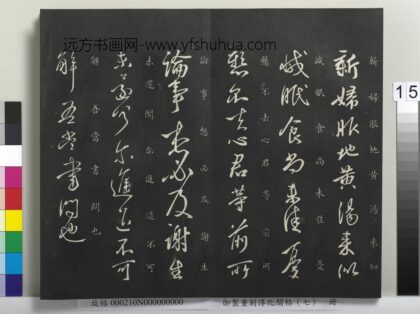 远方书画网-www.yfshuhua.com
新婦服地黃湯來似
新婦服地黃湯來似
減眠食尚未佳憂
減眠食尚未佳憂
懸不去心君等前所
懸不去心君等前所
論事想必及謝生
論事想必及謝生
未還爾進退不可
未還可爾進退不可
解吾當書問也
解吾當書問也
15
故帖000210N000000000 御製重刻淳化閣帖(七) 冊